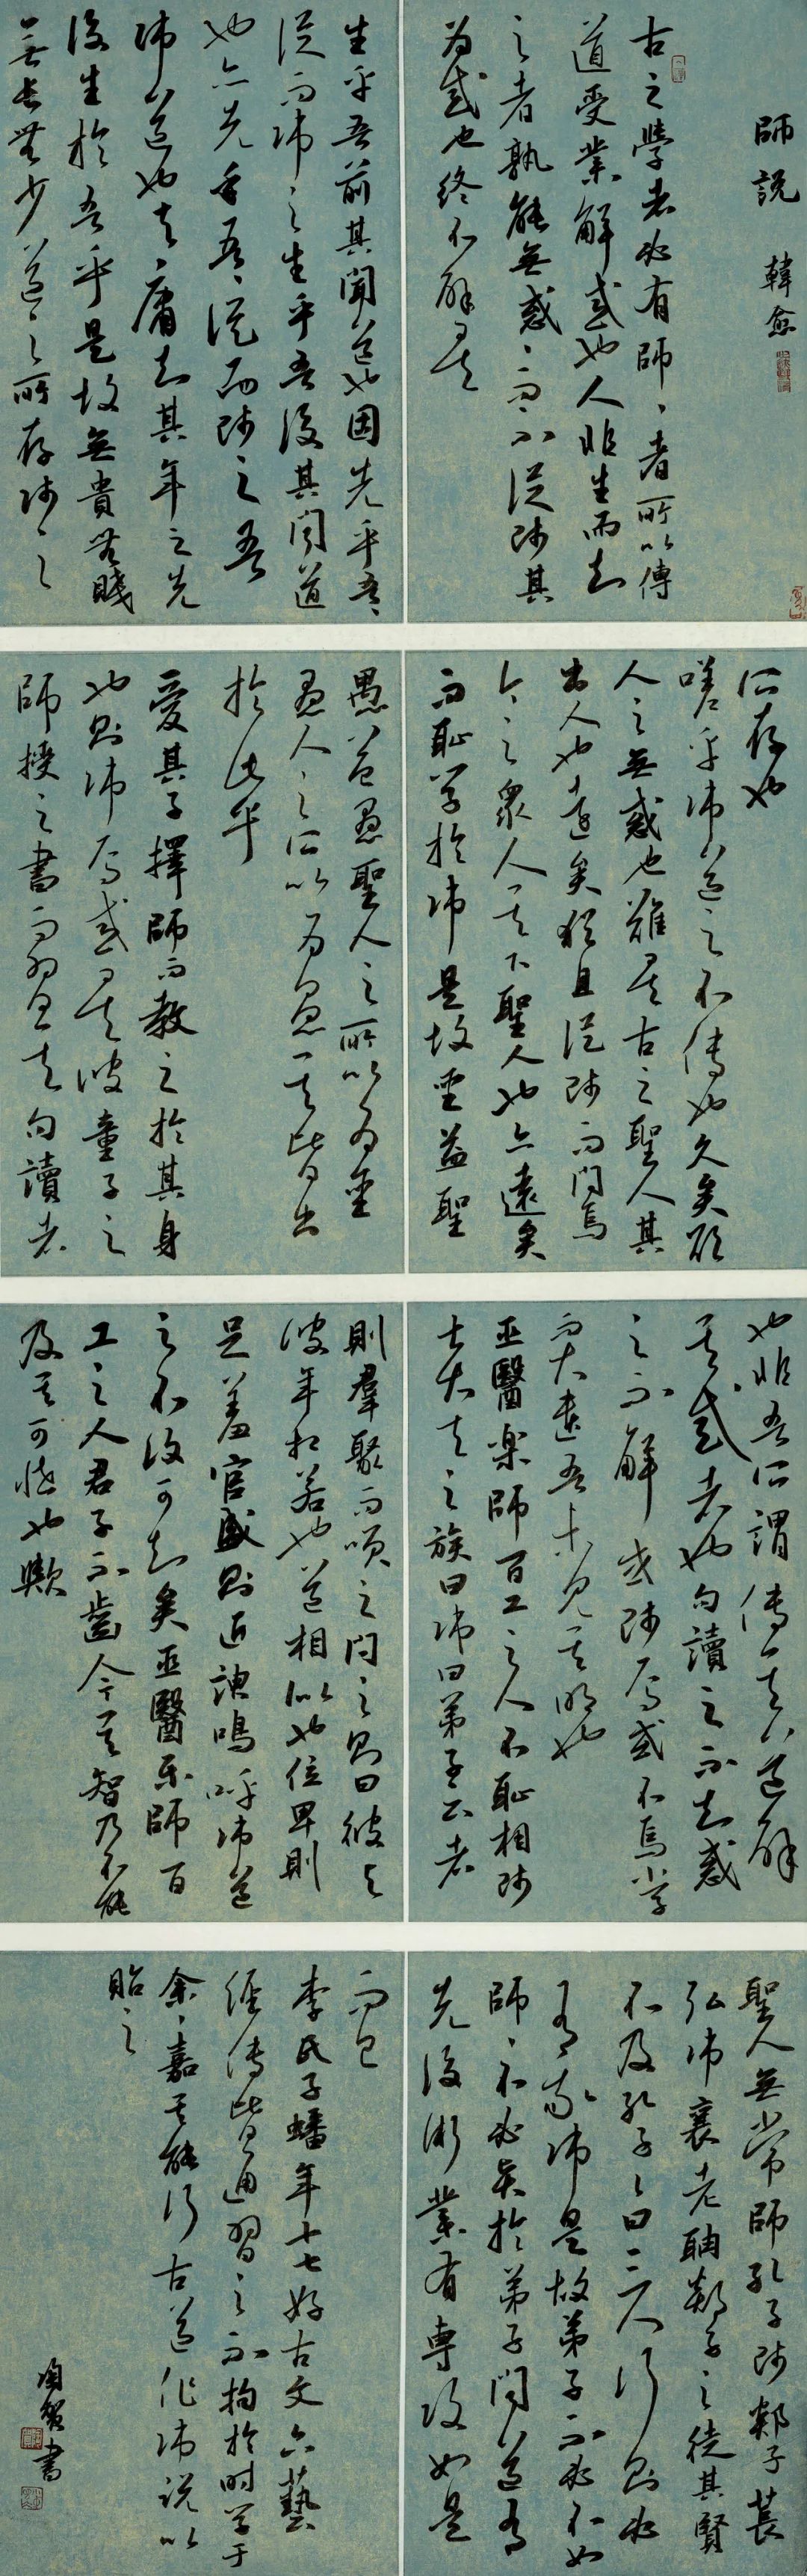 師說 韓愈
古之學者必有師、者所以傳
道受業解惑也人非生而知
之者孰能無惑、而不從師其
為惑也終不解矣
生乎吾前其聞道也固先乎吾、
從而師之生乎吾後其聞道
也亦先乎吾、從而師之吾
師道也夫、庸知其年之先
後生於吾乎是故無貴無賤
無長無少道、之所存師之
所存也
嗟乎師道之不傳也久矣欲
人之無惑也難矣古之聖人其
出人也遠矣猶且從師而問焉
今之衆人其下聖人也亦遠矣
而恥學於師是故聖益聖
愚益愚聖人之所以為聖
愚人之所以為愚其皆出
於此乎
愛其子擇師而教之於其身
也則師焉惑矣彼童子之
師授之書而習其句讀者
也非吾所謂傳其道解
其惑者也句讀之不知惑
之不解或師焉或不焉小學
而大遺吾未見其明也
巫醫樂師百工之人不恥相師
士大夫之族曰師曰弟子云者
則羣聚而笑之問之則曰彼與
彼年相若也道相似也位卑則
足羞官盛則近諛嗚呼師道
之不復可知矣巫醫樂師百
工之人君子不齒今其智乃不能
及其可怪也歟
聖人無常師孔子師郯子萇
弘師襄老聃郯子之徒其賢
不及孔子、曰三人行則必
有我師是故弟子不必不如
師、不必賢於弟子聞道有
先後術業有專攻如是
而已
李氏子蟠年十七好古文六藝
經傳皆通習之不拘於時學于
余、嘉其能行古道作師說以
貽之
書